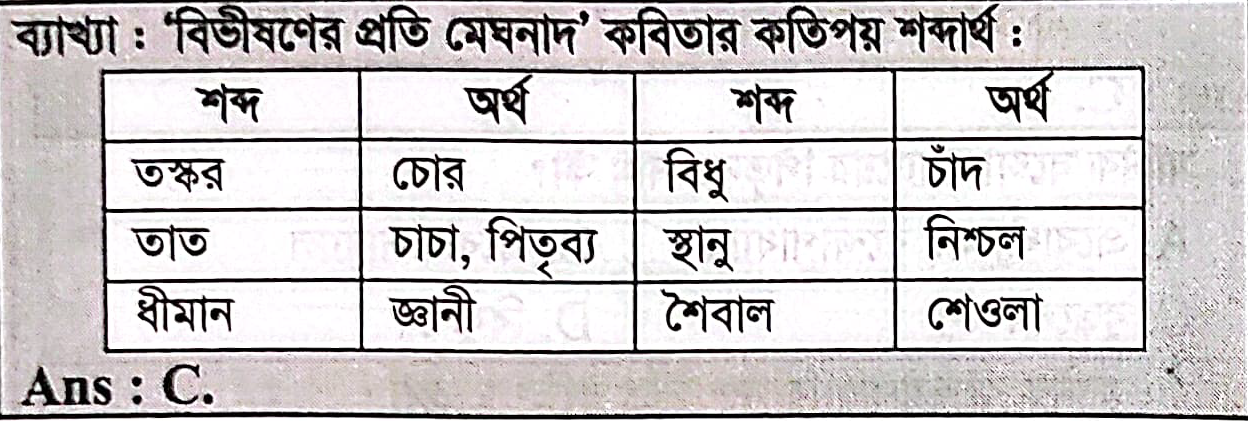 ব্যাখ্যা : ‘বিভীষণের প্রতি মেঘনাদ’ কবিতার কতিপয় শব্দার্থ :
শব্দ অর্থ শব্দ অর্থ
তস্কর চোর বিধু চাঁদ
তাত চাচা, পিতৃব্য স্থানু নিশ্চল
ধীমান জ্ঞানী শৈবাল শেওলা
Ans : C.